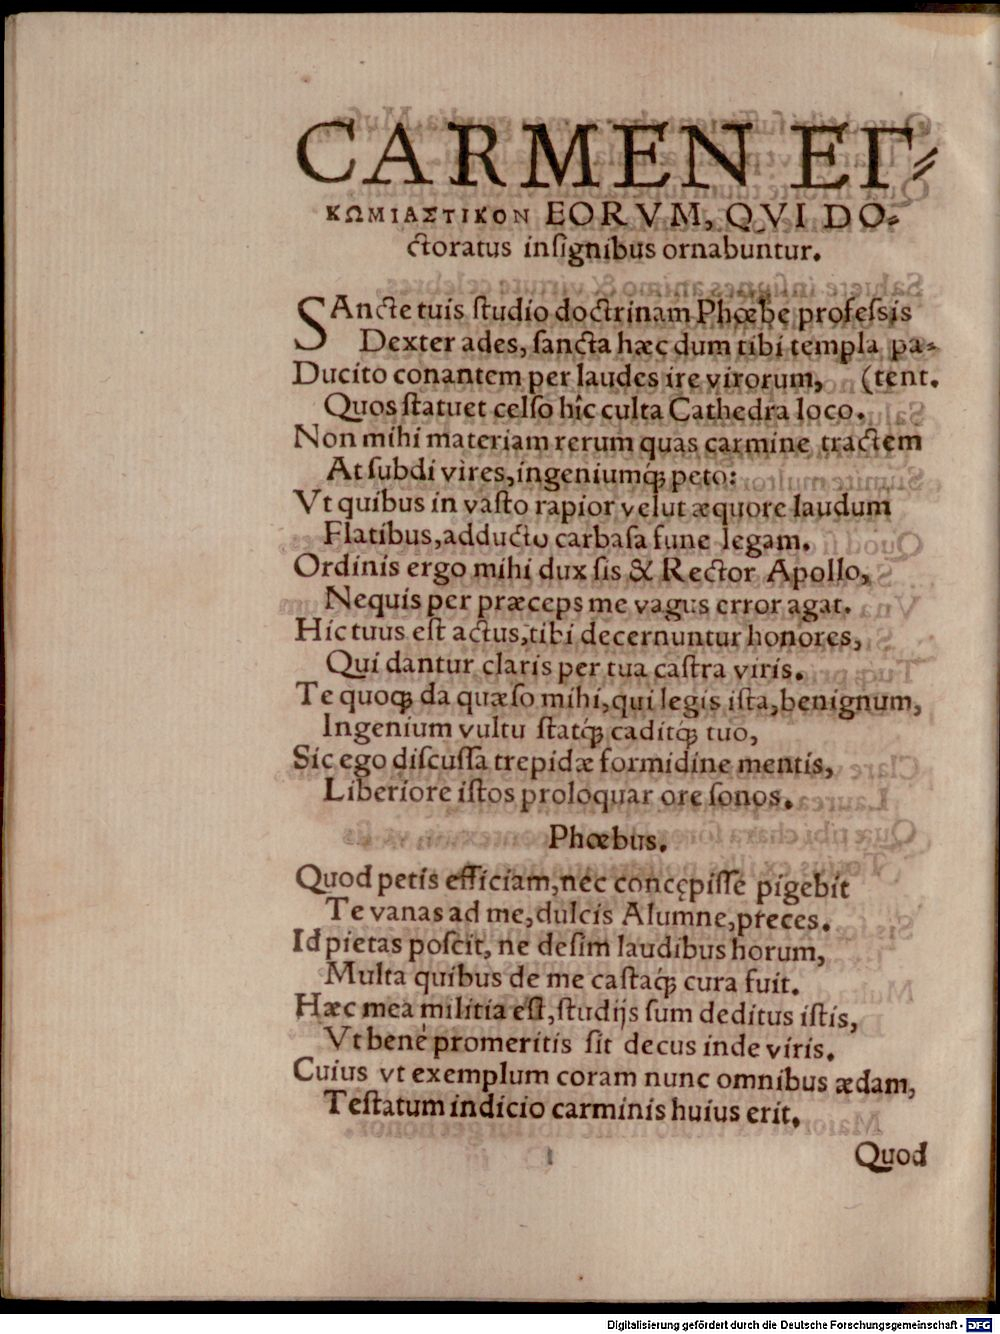 CARMEN ΕΓ⸗
ΚΩΜΙΑΣΤΙΚΟΝ EORVM, QVI DO⸗
ctoratus inſignibus ornabuntur.
SAncte tuis ſtudio doctrinam Phœbe profeſsis
Dexter ades, ſancta hæc dum tibi templa pa⸗
Ducito conantem per laudes ire virorum, (tent.
Quos ſtatuet celſo hîc culta Cathedra loco.
Non mihi materiam rerum quas carmine tractem
At ſubdi vires, ingeniumq́ꝫ peto:
Vt quibus in vaſto rapior velut æquore laudum
Flatibus, adducto carbaſa fune legam.
Ordinis ergo mihi dux ſis & Rector Apollo,
Nequis per præceps me vagus error agat.
Hic tuus eſt actus, tibi decernuntur honores,
Qui dantur claris per tua caſtra viris.
Te quoqꝫ da quæſo mihi, qui legis iſta, benignum,
Ingenium vultu ſtatq́ꝫ caditq́ꝫ tuo,
Sic ego diſcuſſa trepidæ formidine mentis,
Liberiore iſtos proloquar ore ſonos.
Phœbus.
Quod petis efficiam, nec concępiſſe pigebit
Te vanas ad me, dulcis Alumne, preces.
Id pietas poſcit, ne deſim laudibus horum,
Multa quibus de me caſtaq́ꝫ cura fuit.
Hæc mea militia eſt, ſtudijs ſum deditus iſtis,
Vt bene promeritis ſit decus inde viris.
Cuius vt exemplum coram nunc omnibus ædam,
Teſtatum indicio carminis huius erit.
Quod
Digitalisierung gefördert durch die Deutsche Forschungsgemeinschaft - DFG